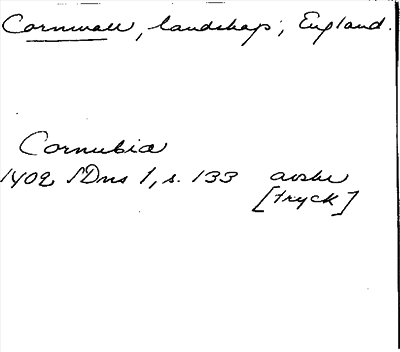 Cornwall, landskap; England.
Cornubia
1402 SDns 1, s. 133 avskr
[tryck]